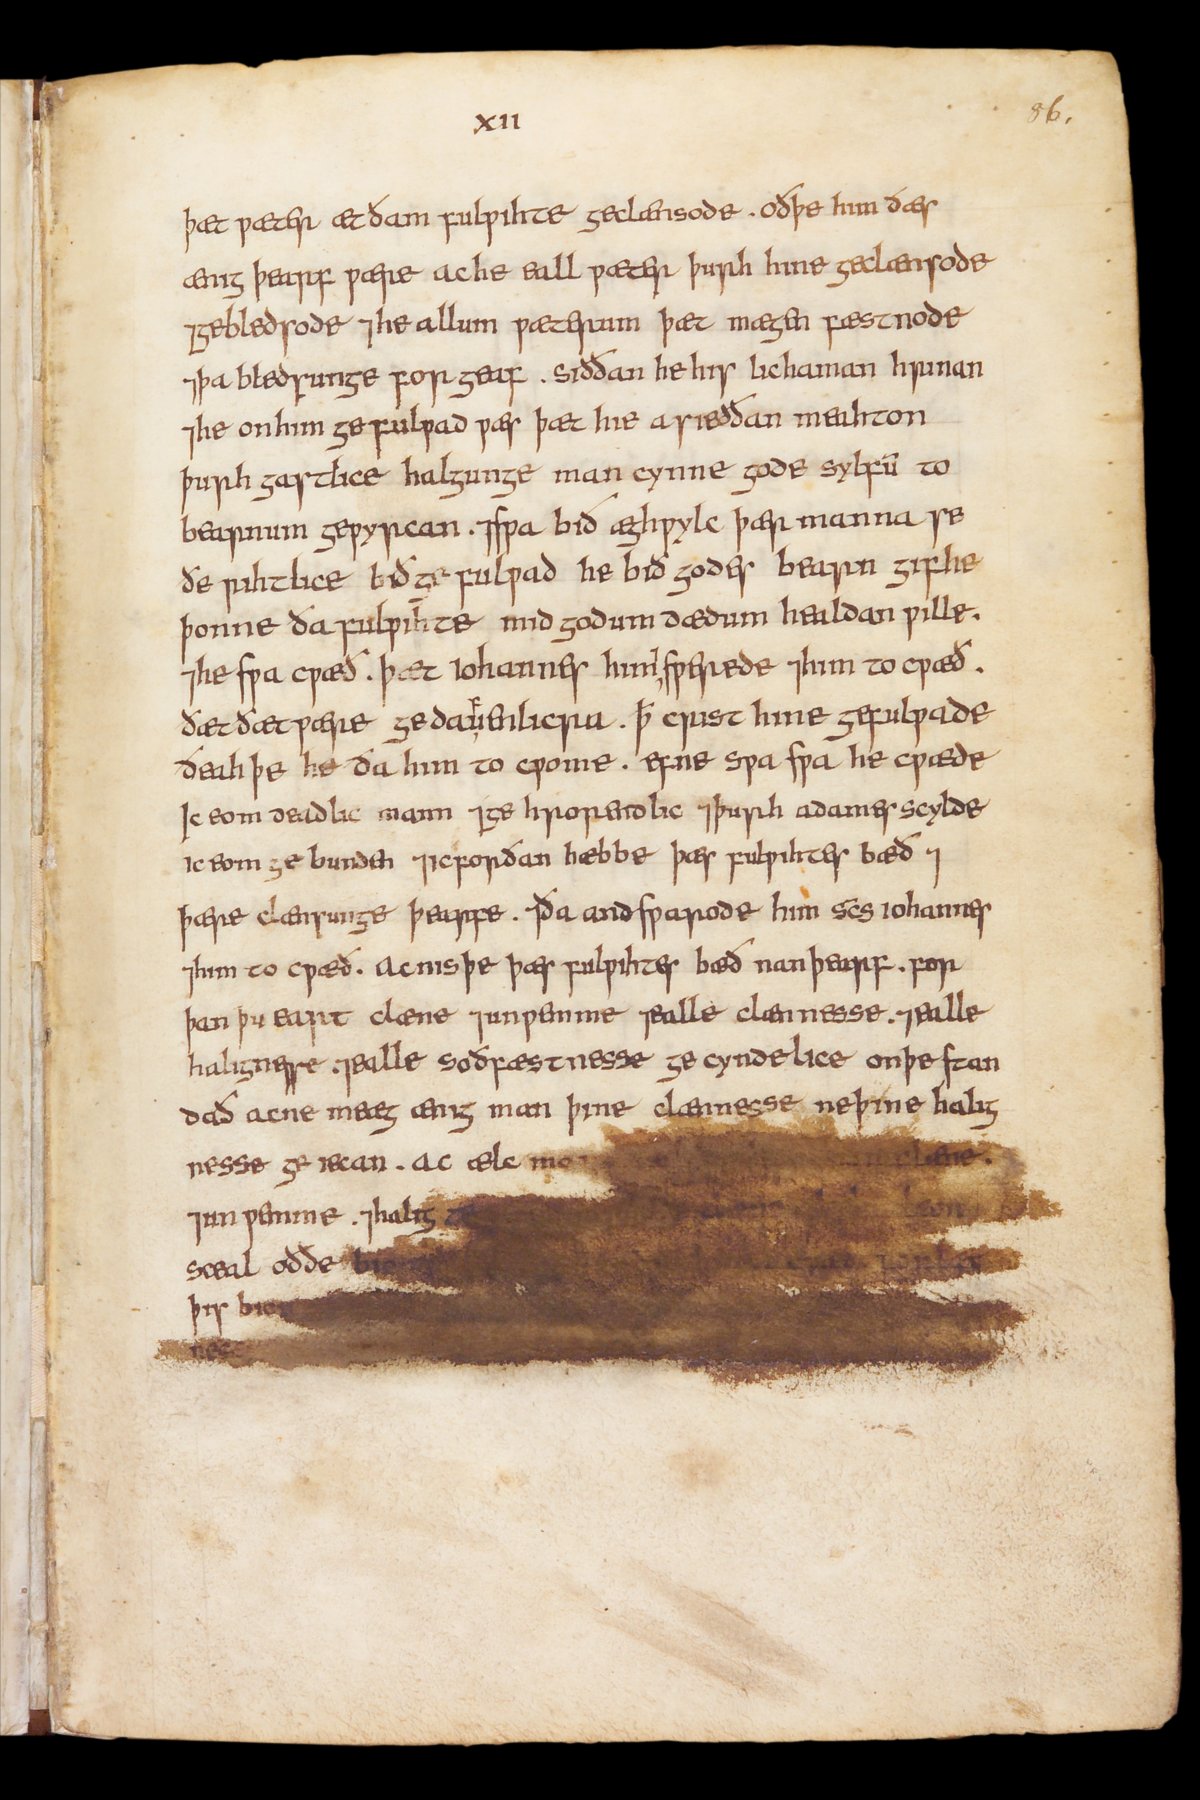 XII
86.
þæt ƿæter æt ðam fulƿihte geclænsode . oðþe him ðæs
ænig þearf ƿære ac he eall ƿæter þurh hine geclænsode
⁊gebledsode ⁊he allum ƿæterum þæt mægen fæstnode
⁊þa bledsunge forgeaf . siððan he his lichaman hrinan
⁊he onhim gefulƿad ƿæs þæt hie a sieððan meahton
þurh gastlice halgunge man cynne gode sylfū to
bearnum geƿyrcan . ⁊sƿa bið æghƿylc þær manna se
ðe rihtlice bið ge fulƿad he bið godes bearn gif he
þonne ða fulƿihte mid godum dædum healdan ƿille .
⁊he sƿa cƿæð . þæt iohannes him sƿerede ⁊him to cƿæð .
ðæt ðæt ƿære gedafenlicra . ꝥ crist hine gefulƿade
ðeah þe he ða him to cƿome . efne sƿa sƿa he cƿæde
Ic eom deadlic mann ⁊ge hrorendlic ⁊þurh adames scylde
ic eom ge bunden ⁊ic forðan hæbbe þæs fulƿihtes bæð ⁊
þære clænsunge þearfe . ⁊ða andsƿarode him scs iohannes
⁊him to cƿæð . Ac nis þe þæs fulƿihtes bæð nan þearf . for
þan þu eart clæne ⁊unƿemme ⁊ealle clænnesse . ⁊ealle
halignesse . ⁊ealle soðfæstnesse ge cyndelice onþe stan
dað ac ne mæg ænig man þine clænnesse ne þine halig
nesse ge iecan . Ac ælc clæne .
⁊unƿemme . ⁊halig
sceal oððe
þis